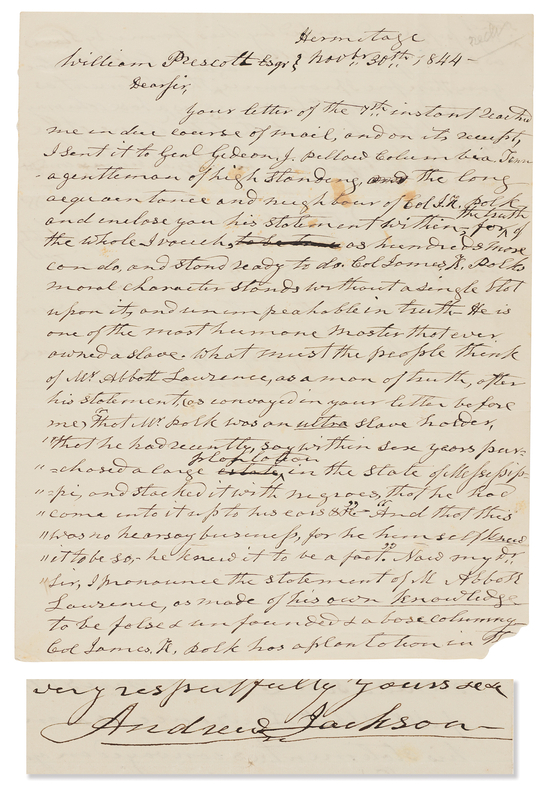 Hermitage
William Prescott Esqr } Novbr 30th 1844-
Dear sir,
your letter of the 7th instant reached
me in due course of mail, and on its receipt,
I sent it to Genl Gedeon, J. Pillow Columbia Tenn
- a gentleman of high standing, and the long
acquaintance and neighbour of Col J. K. Polk
and enclose you his statement within, for the truth of
the whole I vouch, to be true as hundreds more
can do, and stand ready to do. Col James K. Polks
moral character stands without a single blot
upon it, and unimpeachable in truth - He is
one of the most humane master that ever
owned a slave. What must the people think
of Mr Abbott Lawrence, as a man of truth, after
his statement, (as conveyed in your letter before
me,) "That Mr Polk was an ultra slave holder,
"that he had recently, say within six years pur-
"=chased a large estate plantation, in the state of Missisip-
"=pi, and stocked it with negroes, that he had
"come into it up to his ears &c" - "And that this
"was no hearsay business, for he himself knew
"it to be so, - he knew it to be a fact." Now my Dr.
"Sir, I pronounce the statement of M Abbott
Lawrence, as made of his own knowledge
to be false & unfounded & a base calumny
Col James, K. Polk has a plantation in
very respectfully yours &c
Andrew Jackson